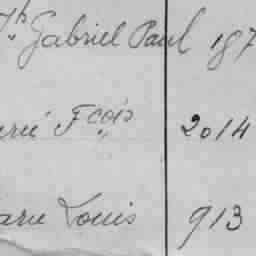 Jh Gabriel Paul 187
arie Fçois 2014
arie Louis 913